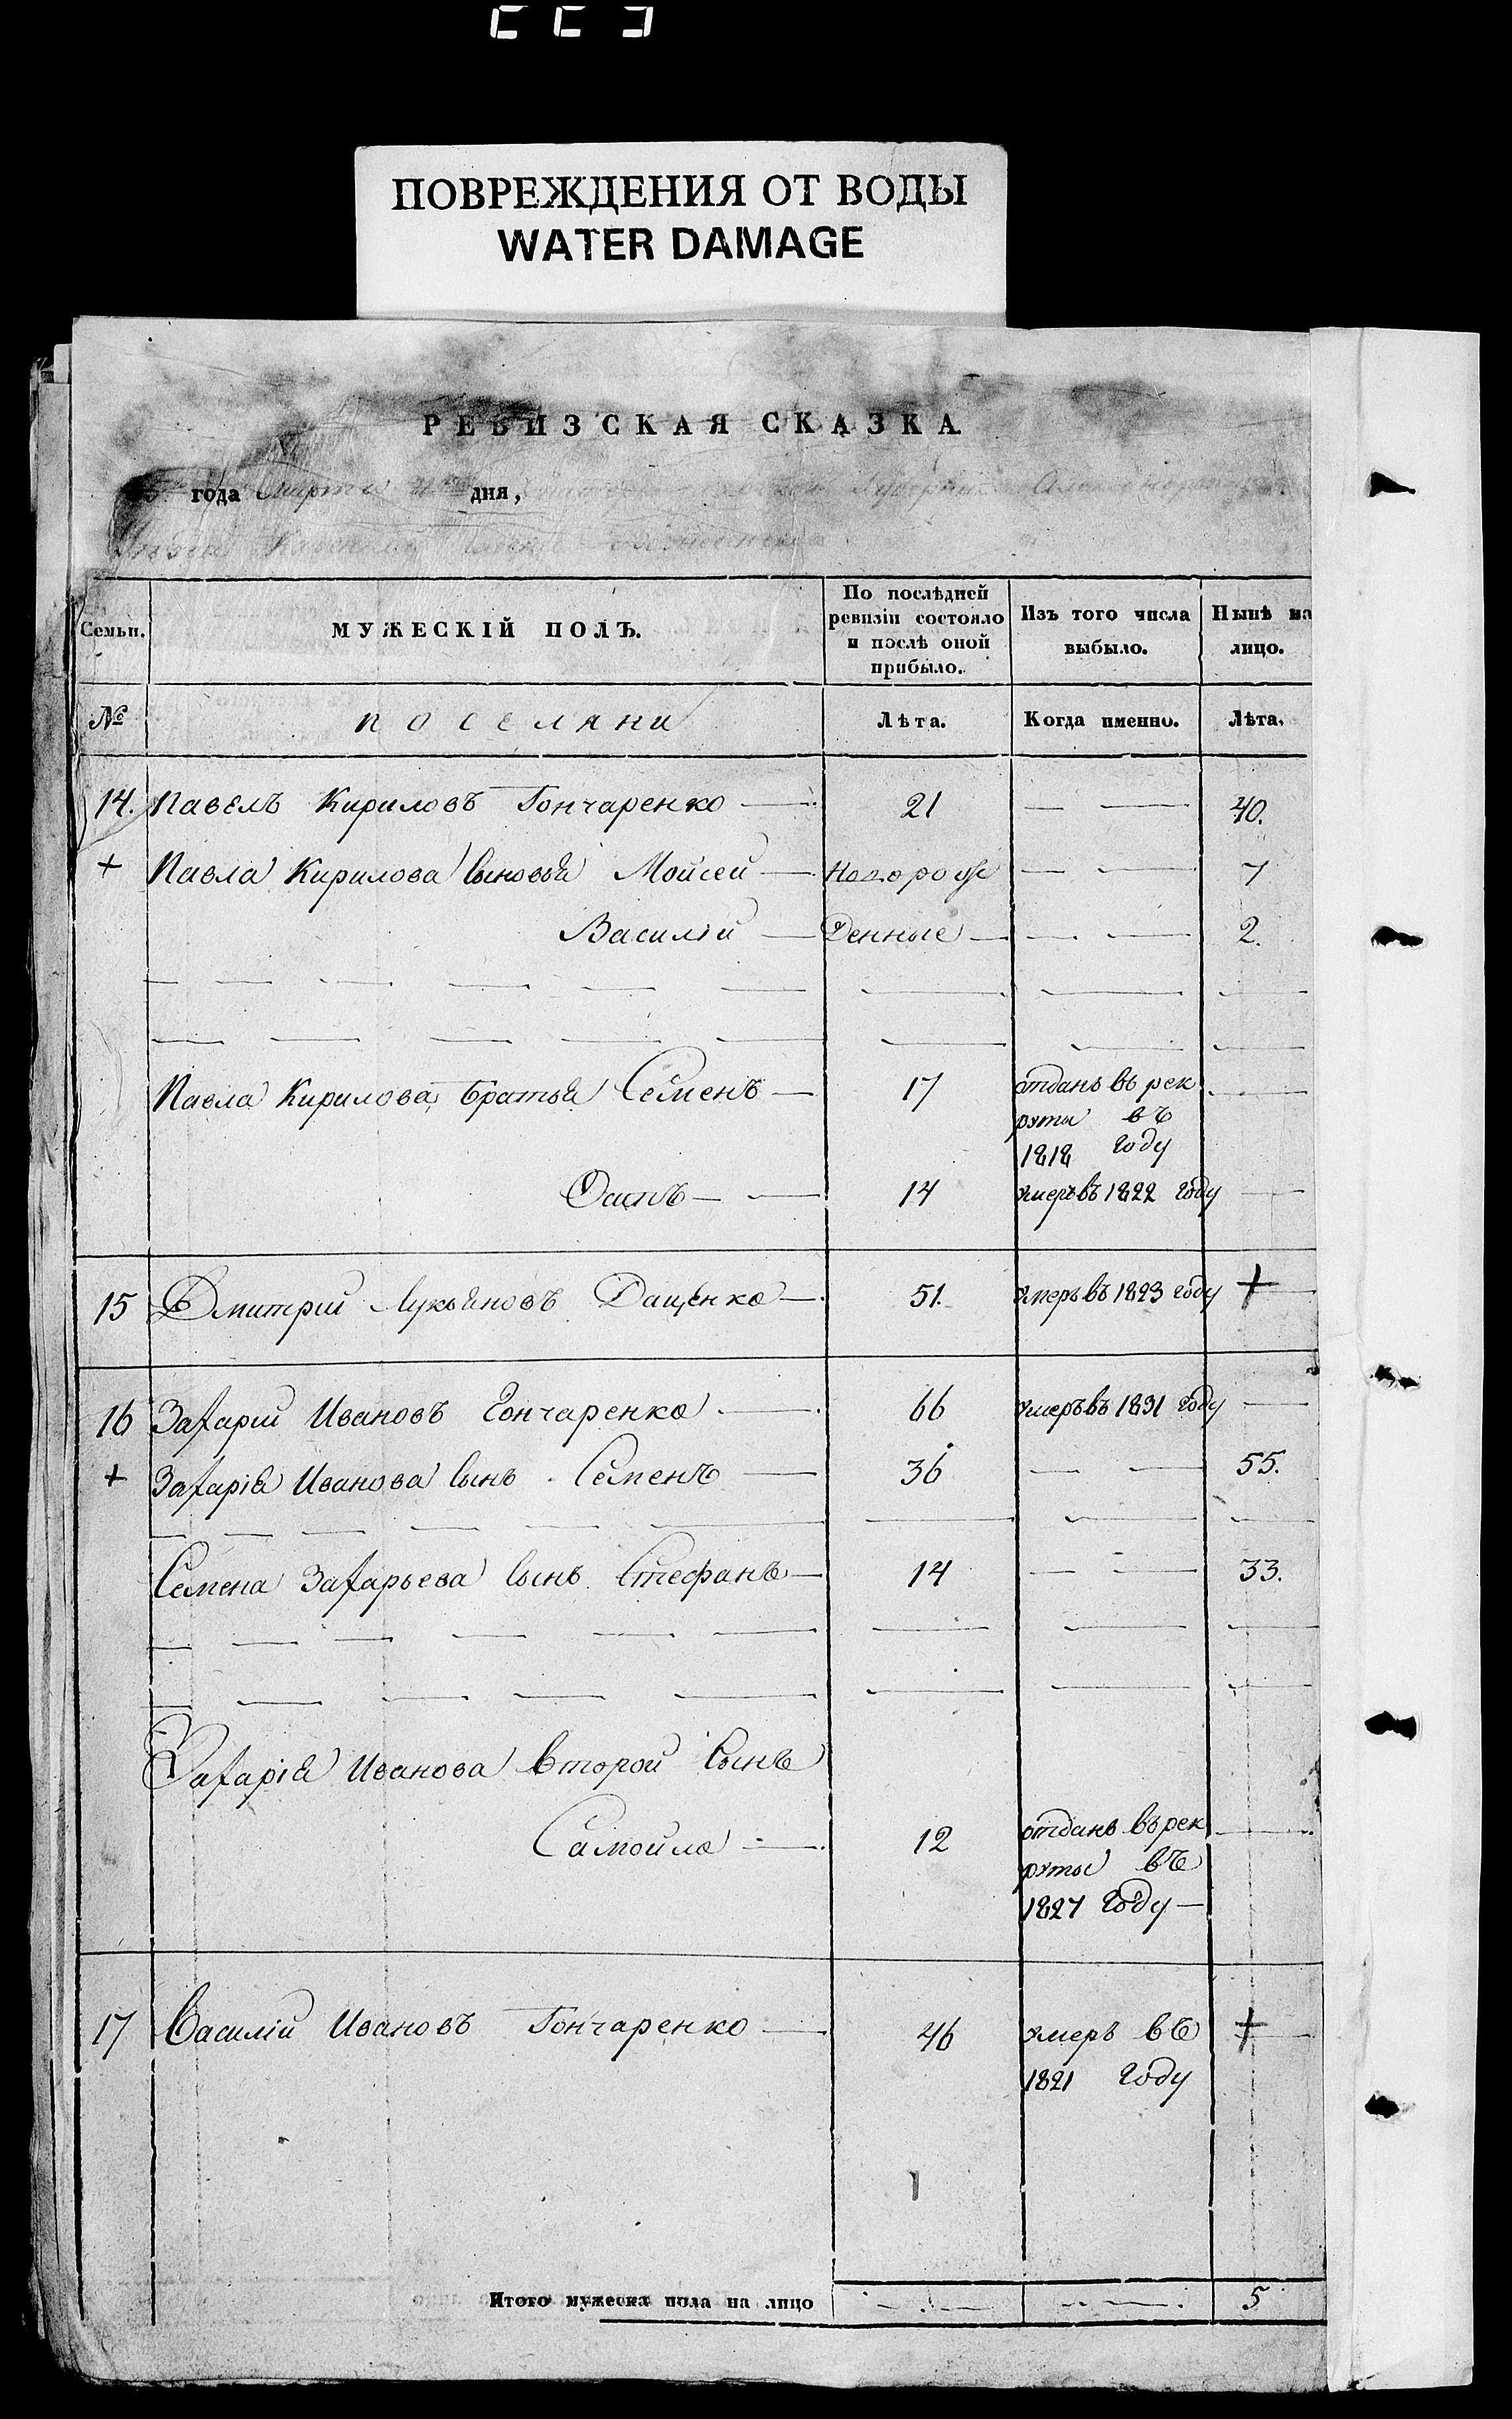 ПОВРЕЖДЕНИЯ ОТ ВОДЫ
WATER DAMAGE
РЕВИЗСКАЯ СКАЗКА
года Марта дня, Губернии
Семьи. МУЖЕСКІЙ ПОЛЪ. По послѣдней ревизіи состояло и послѣ оной прибыло. Изъ того числа выбыло. Нынѣ на лицо.
№ поселяни Лѣта. Когда именно. Лѣта.
14. Павелъ Кириловъ Гончаренко 21 40.
+ Павла Кирилова сыновья Мойсей Новорож 7
Василій денные 2.
Павла Кирилова братья Семенъ 17 отданъ въ рек
руты въ
1818 году
Осипъ 14 умеръ въ 1822 году
15 Дмитрий Лукьяновъ Даценко 51. умеръ въ 1823 году +
16 Захарий Ивановъ Гончаренко 66 умеръ въ 1831 году
+ Захарія Иванова сынъ Семенъ 36 55.
Семена Захарьева сынъ Стефанъ 14 33.
Захарія Иванова второй сынъ
Самойло 12 отданъ въ рек
руты въ
1827 году
17 Василій Ивановъ Гончаренко 46 умеръ въ +
1821 году
Итого мужеска пола на лицо 5